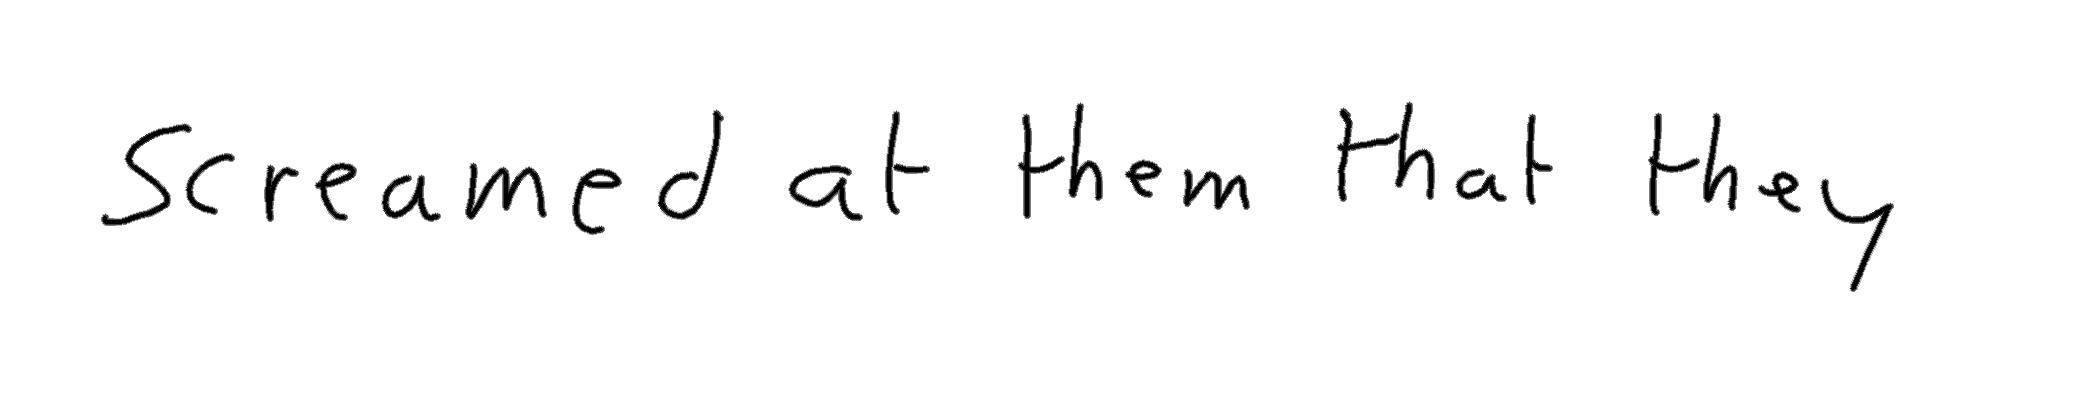 screamed at them that they